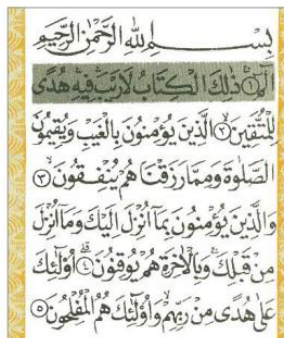 بِسْمِ اللهِ الرَّحْمٰنِ الرَّحِيمِ
الٓمٓ ﴿١﴾ ذٰلِكَ الْكِتَابُ لَا رَيْبَ فِيهِ هُدًى
لِلْمُتَّقِينَ ﴿٢﴾ الَّذِينَ يُؤْمِنُونَ بِالْغَيْبِ وَيُقِيمُونَ
الصَّلٰوةَ وَمِمَّا رَزَقْنَاهُمْ يُنْفِقُونَ ﴿٣﴾
وَالَّذِينَ يُؤْمِنُونَ بِمَا أُنْزِلَ إِلَيْكَ وَمَا أُنْزِلَ
مِنْ قَبْلِكَ وَبِالْآخِرَةِ هُمْ يُوقِنُونَ ﴿٤﴾ أُولٰئِكَ
عَلٰى هُدًى مِنْ رَبِّهِمْ وَأُولٰئِكَ هُمُ الْمُفْلِحُونَ ﴿٥﴾